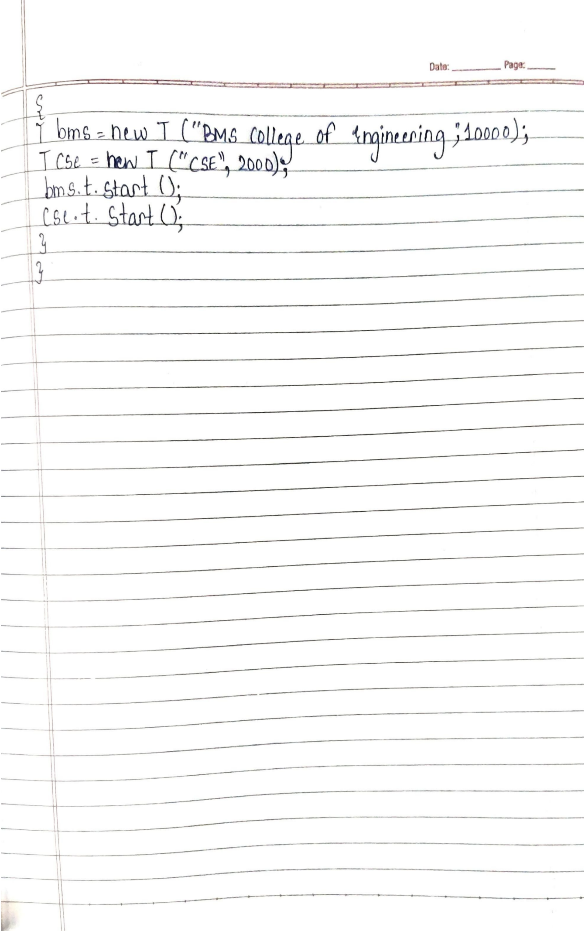 Date: Page:
{
T bms = new T ("BMS College of Engineering", 10000);
T cse = new T ("CSE", 2000);
bms.t. start ();
cse.t. Start ();
}
}